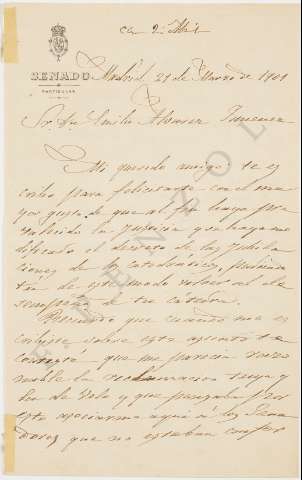 Ca 2 Abl
SENADO
PARTICULAR
Madrid 21 de Marzo de 1901
Sr. Dn Emilio Alonso Jimenez
Mi querido amigo: te es
cribo para felicitarte con el ma
yor gusto de que al fin haya pre
valecido la Justicia y se haya mo
dificado el decreto de las jubila
ciones de los catedraticos, pudien
tú de este modo volver al de
sempeño de tu cátedra.
Recuerdo que cuando me es
cribiste sobre este asunto te
contesté que me parecia razo
nable la reclamacion tuya y
la de Polo y que pensaba por
esto asociarme aqui á los Sena
dores que no estaban confor